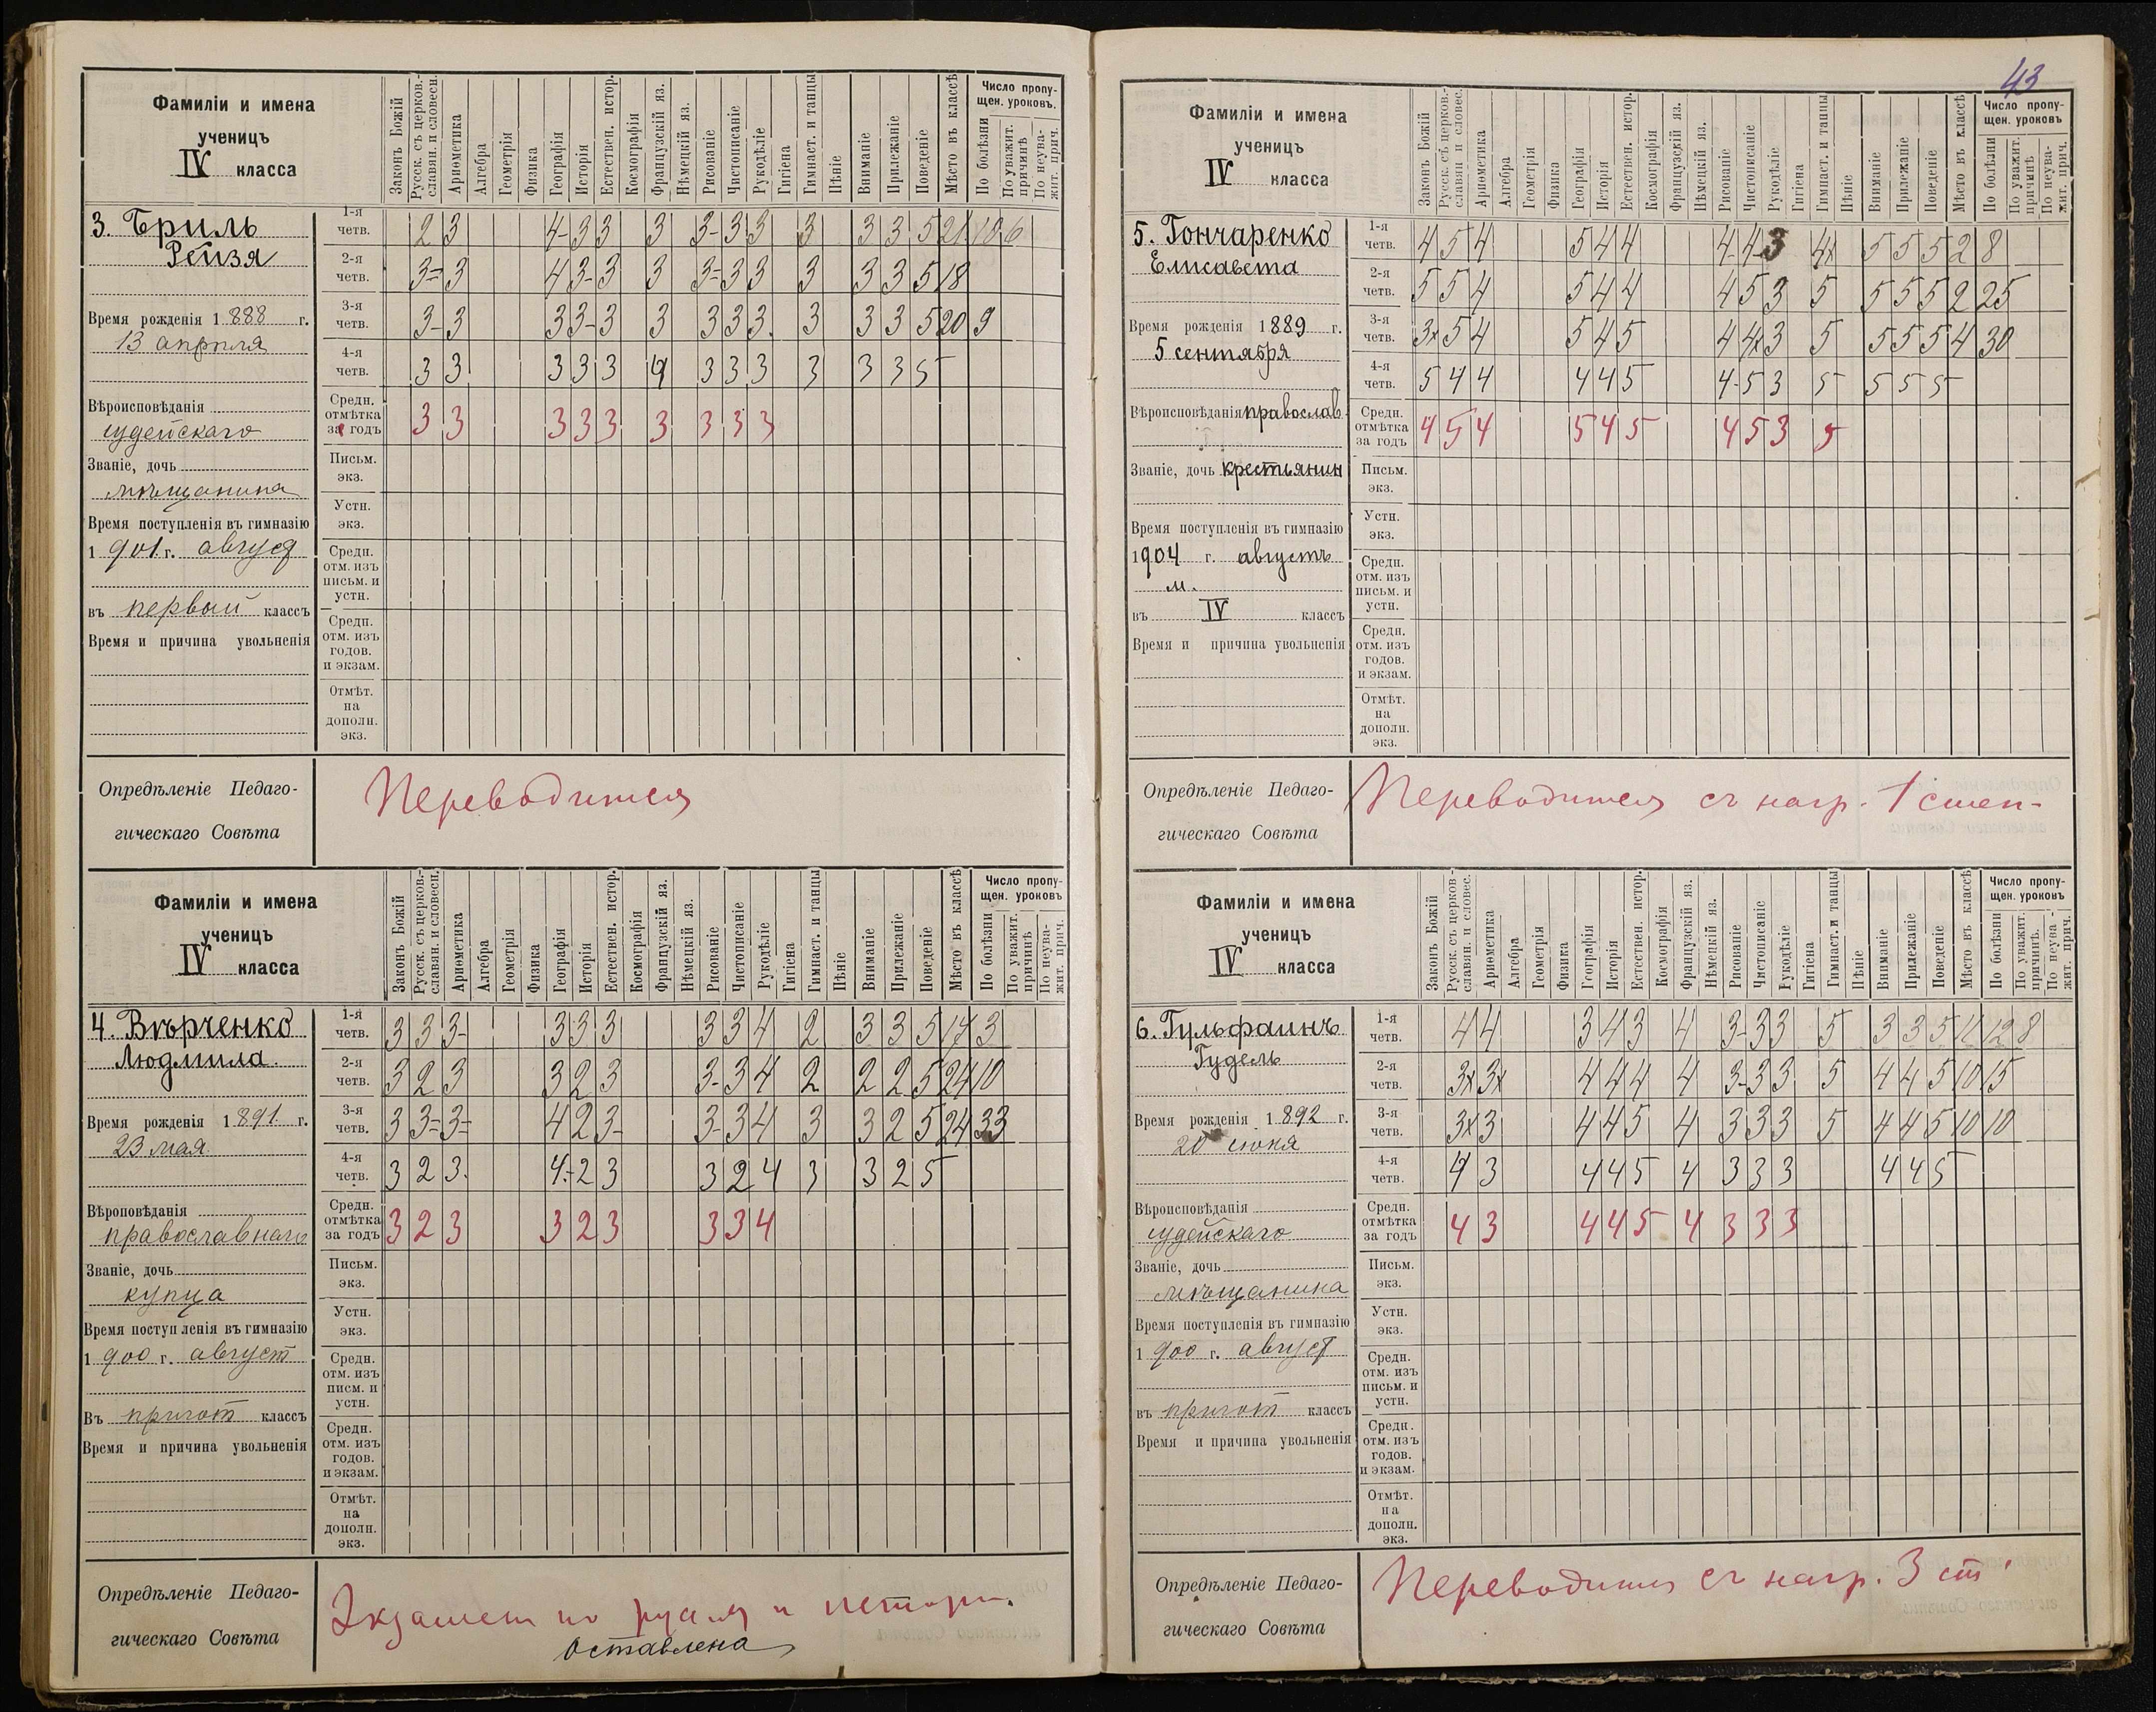 43
Фамиліи и имена
ученицъ
IV класса
Законъ Божій
Русск. съ церков.-славян. и словесн.
Ариѳметика
Алгебра
Геометрія
Физика
Географія
Исторія
Естествен. истор.
Космографія
Французскій яз.
Нѣмецкій яз.
Рисованіе
Чистописаніе
Рукодѣліе
Гигіена
Гимнаст. и танцы
Пѣніе
Вниманіе
Прилежаніе
Поведеніе
Мѣсто въ классѣ
Число пропу-
щен. уроковъ.
По болѣзни
По уважит. причинѣ
По неува-жит. прич.
3. Бриль
Рейзя
Время рожденія 1888 г.
13 апрѣля
Вѣроисповѣданія
іудейскаго
Званіе, дочь
мѣщанина
Время поступленія въ гимназію
1901 г. август
въ первый классъ
Время и причина увольненія
1-я четв. 2 3 4- 3 3 3 3- 3 3 3 3 3 5 21 10 6
2-я четв. 3= 3 4 3- 3 3 3= 3 3 3 3 3 5 18
3-я четв. 3- 3 3 3- 3 3 3 3 3 3 3 3 5 20 9
4-я четв. 3 3 3 3 3 4 3 3 3 3 3 3 5
Средн. отмѣтка за годъ 3 3 3 3 3 3 3 3 3
Письм. экз.
Устн. экз.
Средн. отм. изъ письм. и устн.
Средн. отм. изъ годов. и экзам.
Отмѣт. на дополн. экз.
Опредѣленіе Педаго-
гическаго Совѣта
Переводится
Фамиліи и имена
ученицъ
IV класса
Законъ Божій
Русск. съ церков.-славян. и словесн.
Ариѳметика
Алгебра
Геометрія
Физика
Географія
Исторія
Естествен. истор.
Космографія
Французскій яз.
Нѣмецкій яз.
Рисованіе
Чистописаніе
Рукодѣліе
Гигіена
Гимнаст. и танцы
Пѣніе
Вниманіе
Прилежаніе
Поведеніе
Мѣсто въ классѣ
Число пропу-
щен. уроковъ
По болѣзни
По уважит. причинѣ
По неува-жит. прич.
4. Вѣрченко
Людмила.
Время рожденія 1891 г.
23 мая
Вѣроповѣданія
православнаго
Званіе, дочь
купца
Время поступленія въ гимназію
1900 г. август
Въ пригот классъ
Время и причина увольненія
1-я четв. 3 3 3- 3 3 3 3 3 4 2 3 3 5 17 3
2-я четв. 3 2 3 3 2 3 3- 3 4 2 2 2 5 24 10
3-я четв. 3 3= 3= 4 2 3- 3- 3 4 3 3 2 5 24 33
4-я четв. 3 2 3. 4- 2 3 3 2 4 3 3 2 5
Средн. отмѣтка за годъ 3 2 3 3 2 3 3 3 4
Письм. экз.
Устн. экз.
Средн. отм. изъ писм. и устн.
Средн. отм. изъ годов. и экзам.
Отмѣт. на дополн. экз.
Опредѣленіе Педаго-
гическаго Совѣта
Экзамен по и истори.
Оставлена
Фамиліи и имена
ученицъ
IV класса
Законъ Божій
Русск. съ церков.-славян и словес.
Ариѳметика
Алгебра
Геометрія
Физика
Географія
Исторія
Естествен. истор.
Космографія
Французскій яз.
Нѣмецкій яз.
Рисованіе
Чистописаніе
Рукодѣліе
Гигіена
Гимнаст. и танцы
Пѣніе
Вниманіе
Прилежаніе
Поведеніе
Мѣсто въ классѣ
Число пропу-
щен. уроковъ
По болѣзни
По уважит. причинѣ
По неува-жит. прич.
5. Гончаренко
Елисавета
Время рожденія 1889 г.
5 сентября
Вѣроисповѣданія православ.
Званіе, дочь крестьянин
Время поступленія въ гимназію
1904 г. августъ
м.
въ IV классъ
Время и причина увольненія
1-я четв. 4 5 4 5 4 4 4- 4- 3 4x 5 5 5 2 8
2-я четв. 5 5 4 5 4 4 4 5 3 5 5 5 5 2 25
3-я четв. 3x 5 4 5 4 5 4 4x 3 5 5 5 5 4 30
4-я четв. 5 4 4 4 4 5 4- 5 3 5 5 5 5
Средн. отмѣтка за годъ 4 5 4 5 4 5 4 5 3 5
Письм. экз.
Устн. экз.
Средн. отм. изъ письм. и устн.
Средн. отм. изъ годов. и экзам.
Отмѣт. на дополн. экз.
Опредѣленіе Педаго-
гическаго Совѣта
Переводится съ нагр. 1 степ-
Фамиліи и имена
ученицъ
IV класса
Законъ Божій
Русск. съ церков-славян. и словес.
Ариѳметика
Алгебра
Геометрія
Физика
Географія
Исторія
Естествен. истор.
Космографія
Французскій яз.
Нѣмецкій яз.
Рисованіе
Чистописаніе
Рукодѣліе
Гигіена
Гимнаст. и танцы
Пѣніе
Вниманіе
Прилежаніе
Поведеніе
Мѣсто въ классѣ
Число пропу-
щен. уроковъ
По болѣзни
По уважит. причинѣ.
По неува-жит. прич.
6. Гульфаинъ
Гудель
Время рожденія 1892 г.
20 июня
Вѣроисповѣданія
іудейскаго
Званіе, дочь
мѣщанина
Время поступленія въ гимназію
1900 г. август
въ пригот классъ
Время и причина увольненія
1-я четв. 4 4 3 4 3 4 3- 3 3 5 3 3 5 11 12 8
2-я четв. 3x 3x 4 4 4 4 3- 3 3 5 4 4 5 10 15
3-я четв. 3x 3 4 4 5 4 3 3 3 5 4 4 5 10 10
4-я четв. 4 3 4 4 5 4 3 3 3 4 4 5
Средн. отмѣтка за годъ 4 3 4 4 5 4 3 3 3
Письм. экз.
Устн. экз.
Средн. отм. изъ письм. и устн.
Средн. отм. изъ годов. и экзам.
Отмѣт. на дополн. экз.
Опредѣленіе Педаго-
гическаго Совѣта
Переводится съ нагр. 3 ст